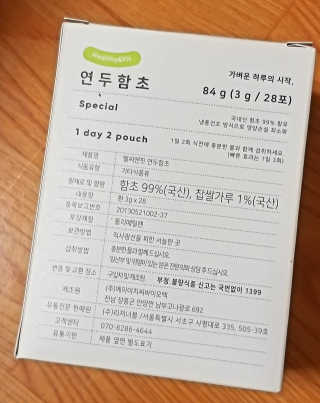 Healthy&Fit
연두함초
가벼운 하루의 시작,
84 g (3 g / 28포)
Special
국내산 함초 99% 함유
냉풍건조 방식으로 영양손실 최소화
1 day 2 pouch
1일 2회 식전에 충분한 물과 함께 섭취하세요.
(빠른 효과는 1일 3회)
제품명 헬씨앤핏 연두함초
식품유형 기타식품류
원재료 및 함량 함초 99%(국산), 찹쌀가루 1%(국산)
내용량 환 3g x 28
품목보고번호 20130521002-37
포장재질 폴리에틸렌
보관방법 직사광선을 피한 서늘한 곳
섭취방법 충분한 물과 함께 드십시오.
임산부 및 질환이 있는 분은 전문의와 상담 후 드십시오.
반품 및 교환 장소 구입처 및 제조원 부정·불량식품 신고는 국번없이 1399
제조원 (주)에이아지씨바이오텍
전남 장흥군 안양면 남부고나랑로 692
유통전문 판매원 (주)리치나몰 /서울특별시 서초구 사평대로 335, 505-39호
고객센터 070-8286-4644
유통기한 제품 옆면 별도표기